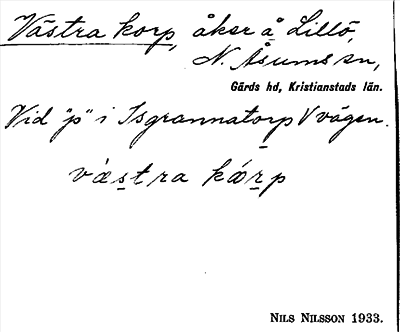 Västra korp, åker å Lillö,
N. Åsums sn,
Gärds hd, Kristianstads län.
Vid "p" i Isgrannatorp V vägen.
västra kårp
NILS NILSSON 1933.